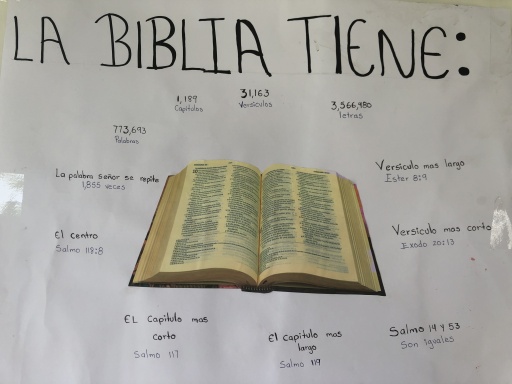 LA BIBLIA TIENE:
1,189
Capitulos
31,163
Versiculos
3,566,980
letras
773,693
Palabras
La palabra señor se repite
1,855 veces
Versiculo mas largo
Ester 8:9
El centro
Salmo 118:8
Versiculo mas corto
Exodo 20:13
EL Capitulo mas
corto
Salmo 117
El capitulo mas
largo
Salmo 119
Salmo 14 y 53
Son iguales